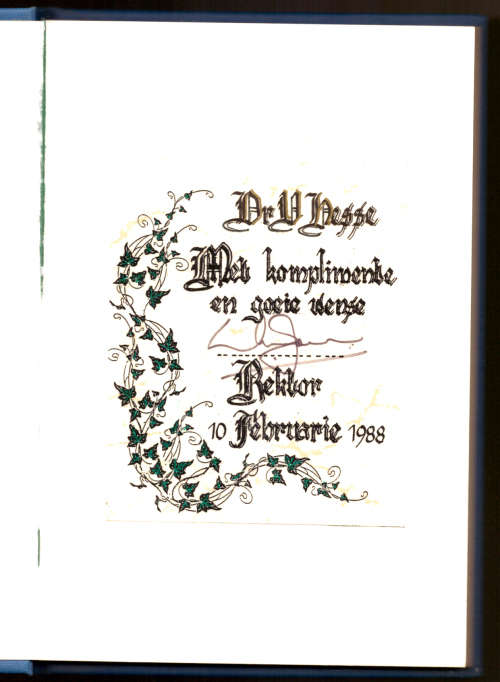 Dr V Hesse
Met komplimente
en goeie wense
Rektor
10 Februarie 1988